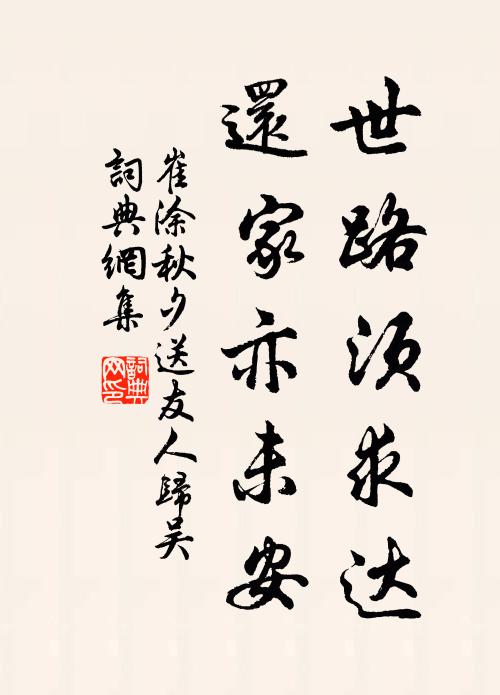 世路须求达
還家亦未安
崔涂秋夕送友人歸吴
詞典網集
詞典網印